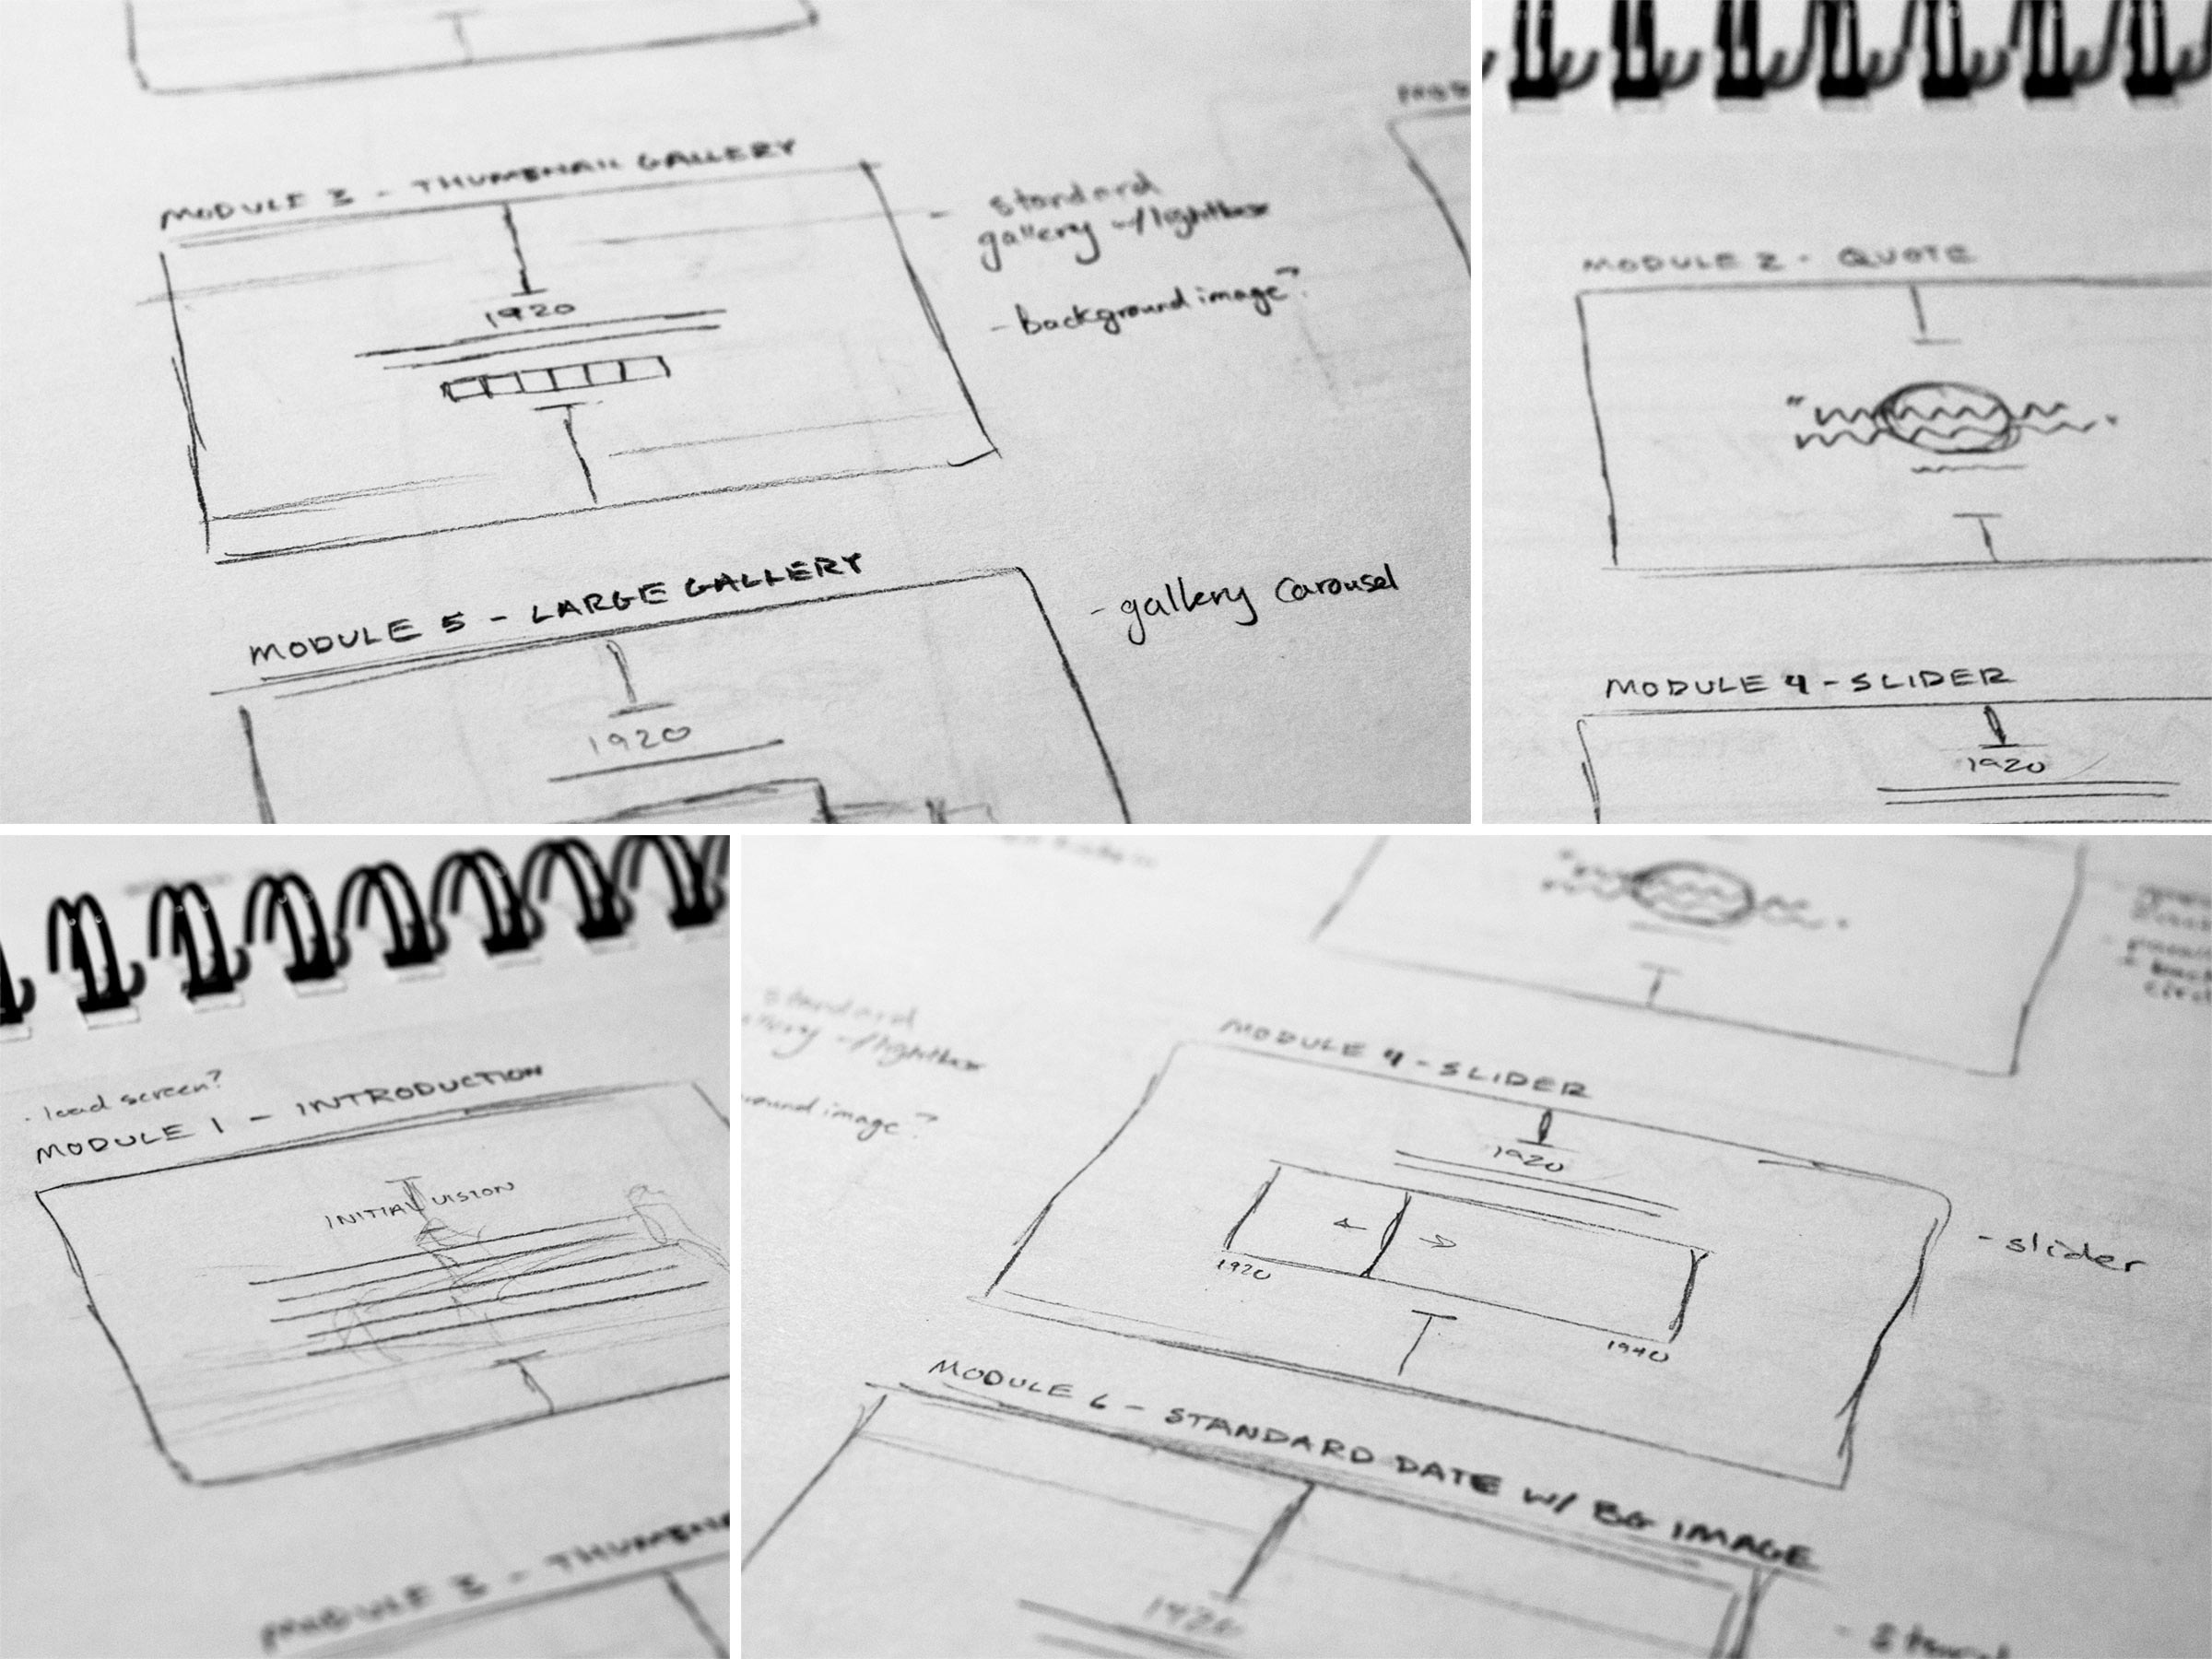 MODULE 3 - THUMBNAIL GALLERY
1920
- standard
gallery w/lightbox
- background image?
MODULE 5 - LARGE GALLERY
1920
- gallery carousel
MODULE 2 - QUOTE
MODULE 4 - SLIDER
1920
- load screen?
MODULE 1 - INTRODUCTION
INITIAL VISION
MODULE 3 - THUMBNA
standard
allery w/lightbox
round image?
MODULE 4 - SLIDER
1920
1920
1940
- slider
MODULE 6 - STANDARD DATE W/ BG IMAGE
1920